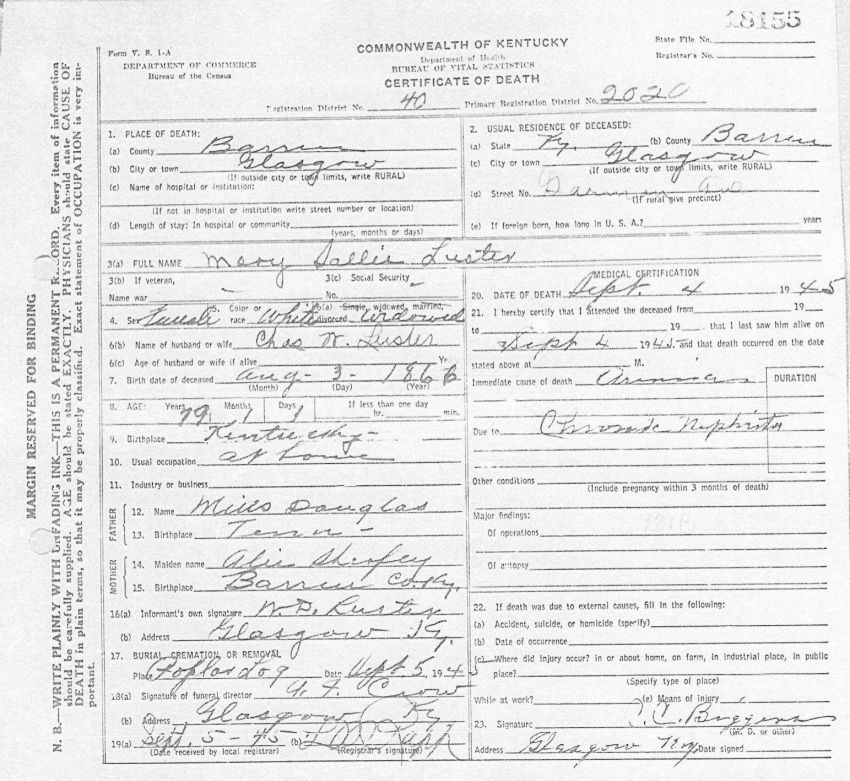 18155
Form V. S. 1-A
DEPARTMENT OF COMMERCE
Bureau of the Census
COMMONWEALTH OF KENTUCKY
Department of Health
BUREAU OF VITAL STATISTICS
CERTIFICATE OF DEATH
State File No.
Registrar's No.
Registration District No. 40 Primary Registration District No. 2020
MARGIN RESERVED FOR BINDING
N. B.—WRITE PLAINLY WITH UNFADING INK—THIS IS A PERMANENT RECORD. Every item of information
should be carefully supplied. AGE should be stated EXACTLY. PHYSICIANS should state CAUSE OF
DEATH in plain terms, so that it may be properly classified. Exact statement of OCCUPATION is very im-
portant.
1. PLACE OF DEATH:
(a) County Barren
(b) City or town Glasgow
(If outside city or town limits, write RURAL)
(c) Name of hospital or institution:
(If not in hospital or institution write street number or location)
(d) Length of stay: In hospital or community
(years, months or days)
2. USUAL RESIDENCE OF DECEASED:
(a) State Ky. (b) County Barren
(c) City or town Glasgow
(If outside city or town limits, write RURAL)
(d) Street No. Ave
(If rural give precinct)
(e) If foreign born, how long in U. S. A.? years
3(a) FULL NAME Mary Sallie Luster
3(b) If veteran,
Name war
3(c) Social Security
No.
4. Sex Female 5. Color or race White 6(a) Single, widowed, married, divorced Widowed
6(b) Name of husband or wife Chas W. Luster
6(c) Age of husband or wife if alive Yr.
7. Birth date of deceased Aug - 3 - 1866
(Month) (Day) (Year)
8. AGE: Years 79 Months 1 Days 1 If less than one day
hr. min.
9. Birthplace Kentucky
10. Usual occupation at home
11. Industry or business
FATHER
12. Name Mills Douglas
13. Birthplace Tenn -
MOTHER
14. Maiden name
15. Birthplace Barren Co. Ky.
16(a) Informant's own signature W. P. Luster
(b) Address Glasgow Ky.
17. BURIAL, CREMATION, OR REMOVAL
Place Poplar Log Date Sept 5, 1945
18(a) Signature of funeral director A. F. Crow
(b) Address Glasgow Ky
19(a) Sept. 5 - 45 (b)
(Date received by local registrar) (Registrar's signature)
MEDICAL CERTIFICATION
20. DATE OF DEATH Sept. 4 1945
21. I hereby certify that I attended the deceased from 19
to 19 , that I last saw him alive on
Sept 4 1945, and that death occurred on the date
stated above at M.
Immediate cause of death
DURATION
Due to Chronic Nephritis
Other conditions
(Include pregnancy within 3 months of death)
Major findings:
Of operations
Of autopsy
22. If death was due to external causes, fill in the following:
(a) Accident, suicide, or homicide (specify)
(b) Date of occurrence
(c) Where did injury occur? in or about home, on farm, in industrial place, in public
place?
(Specify type of place)
While at work? (e) Means of injury
23. Signature
(M. D. or other)
Address Glasgow Ky. Date signed